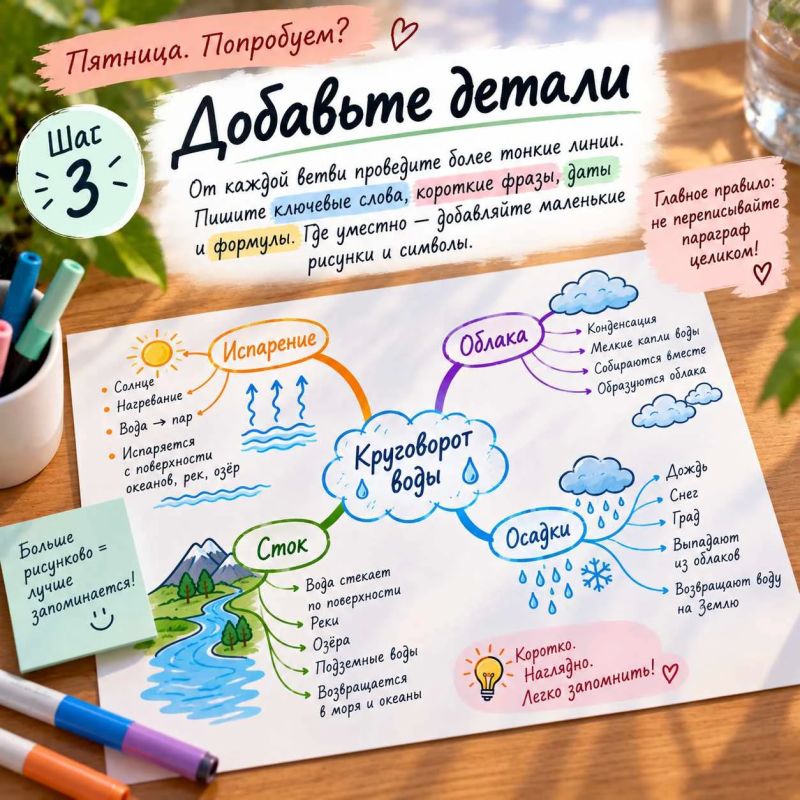 Пятница. Попробуем?
Шаг
3
Добавьте детали
От каждой ветви проведите более тонкие линии.
Пишите ключевые слова, короткие фразы, даты
и формулы. Где уместно — добавляйте маленькие
рисунки и символы.
Главное правило:
не переписывайте
параграф
целиком!
Испарение
Солнце
Нагревание
Вода → пар
Испаряется
с поверхности
океанов, рек, озёр
Облака
Конденсация
Мелкие капли воды
Собираются вместе
Образуются облака
Круговорот
воды
Сток
Вода стекает
по поверхности
Реки
Озёра
Подземные воды
Возвращается
в моря и океаны
Осадки
Дождь
Снег
Град
Выпадают
из облаков
Возвращают воду
на Землю
Больше
рисунково =
лучше
запоминается!
Коротко.
Наглядно.
Легко запомнить!